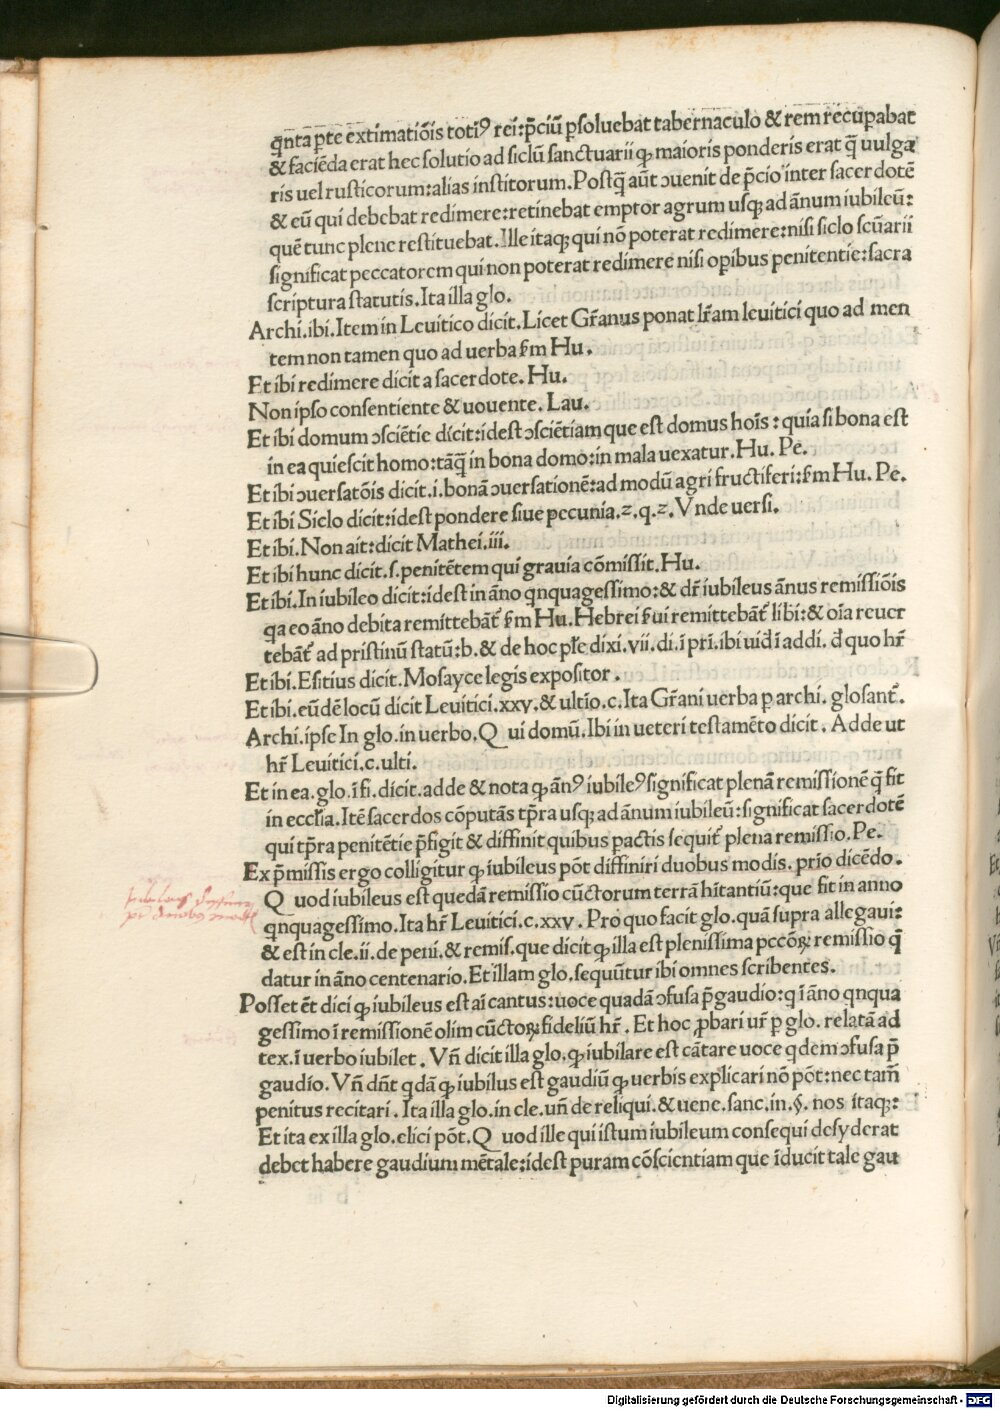 qnta pte extimatiōis totiꝰ rei:p̄ciū ꝑsoluebat tabernaculo & rem recuꝑabat
& faciēda erat hec solutio ad siclū sanctuarii ꝙ maioris ponderis erat q̄ uulga
ris uel rusticorum:alias institorum.Postq̄ aūt ↄuenit de p̄cio inter sacer dotē
& eū qui debebat redimere:retinebat emptor agrum usqꝫ ad ānum iubileū:
quē tunc plene restituebat.Ille itaqꝫ qui nō poterat redimere:nisi siclo scūarii
significat peccatorem qui non poterat redimere nisi opibus penitentie:sacra
scriptura statutis.Ita illa glo.
Archi.ibi.Item in Leuitico dicit.Licet Gr̄anus ponat lr̄am leuitici quo ad men
tem non tamen quo ad uerba ẜm Hu.
Et ibi redimere dicit a sacerdote.Hu.
Non ipso consentiente & uouente.Lau.
Et ibi domum ↄsciētie dicit:idest ↄsciētiam que est domus hoīs:quia si bona est
in ea quiescit homo:tāq̄ in bona domo:in mala uexatur.Hu.Pe.
Et ibi ↄuersatōis dicit.i.bonā ↄuersationē:ad modū agri fructiferi:ẜm Hu.Pe.
Et ibi Siclo dicit:idest pondere siue pecunia.z.q.z.Vnde uersi.
Et ibi.Non ait:dicit Mathei.iii.
Et ibi hunc dicit.s.penitētem qui grauia cōmissit.Hu.
Et ibi.In iubileo dicit:idest in āno qnquagessimo:& dr̄ iubileus ānus remissiōis
qa eo āno debita remittebāt̄ ẜm Hu.Hebrei ẜui remittebāt̄ libi:& oīa reuer
tebāt̄ ad pristinū statū:b.& de hoc pl̄e dixi.vii.di.ī pri.ibi uid̄ ī addi.d̄ quo hr̄
Et ibi.Esitius dicit.Mosayce legis expositor.
Et ibi.eūdē locū dicit Leuitici.xxv.& ultio.c.Ita Gr̄ani uerba p archi.glosant̄.
Archi.ipse In glo.in uerbo.Q ui domū.Ibi in ueteri testamēto dicit.Adde ut
hr̄ Leuitici.c.ulti.
Et in ea.glo.ī fi.dicit.adde & nota ꝙ ānꝰ iubileꝰ significat plenā remissionē q̄ fit
in eccl̄ia.Itē sacerdos cōputās tp̄ra usqꝫ ad ānum iubileū:significat sacerdotē
qui tp̄ra penitētie p̄figit & diffinit quibus pactis sequit̄ plena remissio.Pe.
Ex p̄missis ergo colligitur ꝙ iubileus pōt diffiniri duobus modis.prio dicēdo.
Q uod iubileus est quedā remissio cūctorum terrā hītantiū:que fit in anno
qnquagessimo.Ita hr̄ Leuitici.c.xxv.Pro quo facit glo.quā supra allegaui:
& est in cle.ii.de peni.& remis.que dicit ꝙ illa est plenissima pccōꝝ remissio q̄
datur in āno centenario.Et illam glo.sequūtur ibi omnes scribentes.
Posset ēt dici ꝙ iubileus est aī cantus:uoce quadā ↄfusa p̄ gaudio:q ī āno qnqua
gessimo ī remissionē olim cūctoꝝ fideliū hr̄.Et hoc ꝓbari ur̄ p glo.relatā ad
tex.ī uerbo iubilet.Vn̄ dicit illa glo.ꝙ iubilare est cātare uoce qdem ↄfusa p̄
gaudio.Vn̄ dn̄t qdā ꝙ iubilus est gaudiū ꝙ uerbis explicari nō pōt:nec tam̄
penitus recitari.Ita illa glo.in cle.un̄ de reliqui.& uene.sanc.in.§.nos itaqꝫ:
Et ita ex illa glo.elici pōt.Q uod ille qui istum iubileum consequi desyderat
debet habere gaudium mētale:idest puram cōscientiam que īducit tale gau
Digitalisierung gefördert durch die Deutsche Forschungsgemeinschaft - DFG